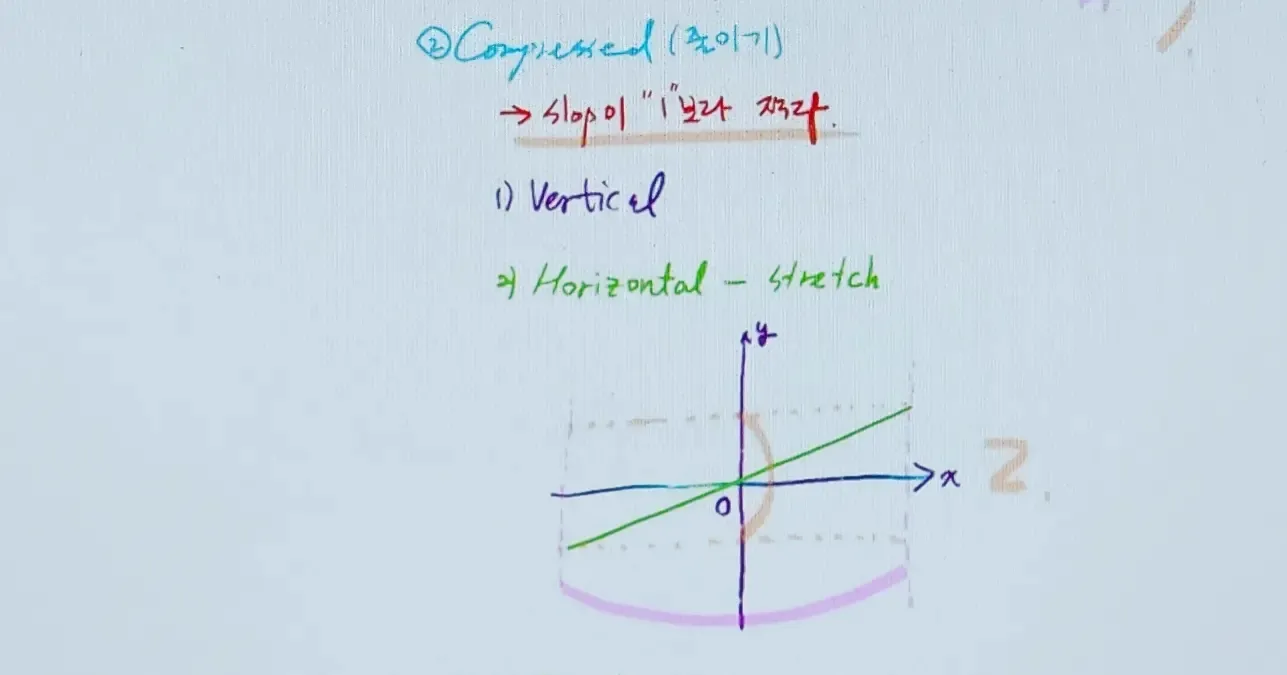 ② Compressed (줄이기)
→ slop이 "1"보다 작다.
1) Vertical
2) Horizontal - stretch
y
x
0
2.